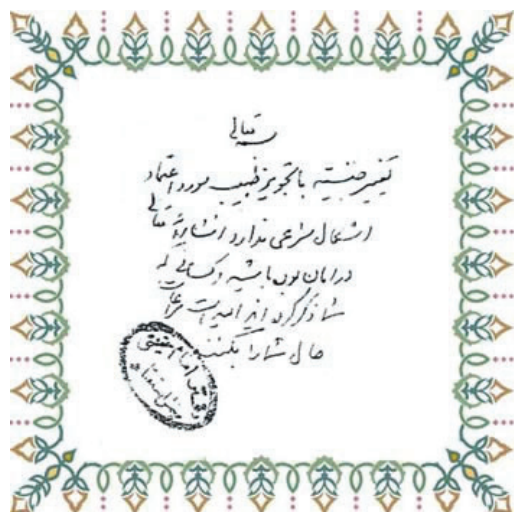 بسمه تعالی
تغییر جنسیت با تجویز طبیب مورد اعتماد
اشکال شرعی ندارد انشاءالله تعالی
در امان بوده باشید و کسانی که
شما ذکر کرده اند امید است مراعات
حال شما را بکنند